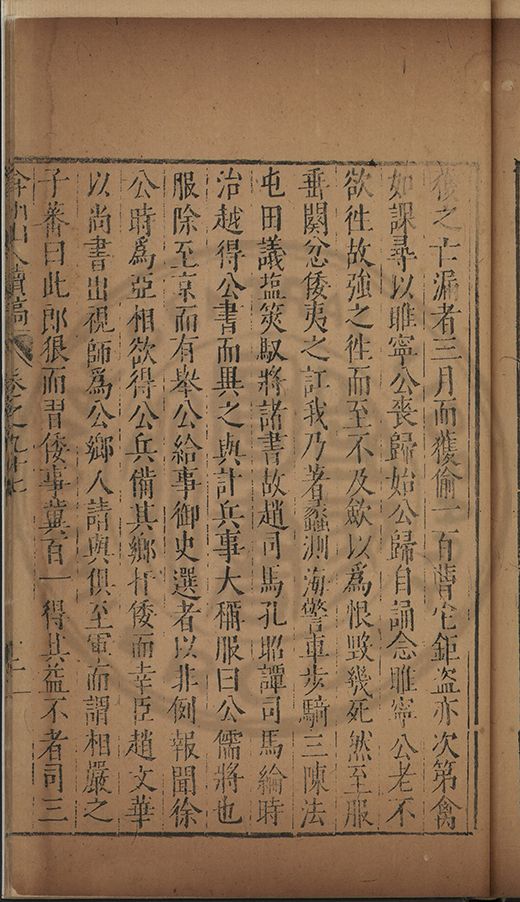 獲之亡漏者三月而獲偷一百曹宅鉅盜亦次第禽
如課尋以睢寧公喪歸始公歸自誦念睢寧公老不
欲徃故強之徃而至不及歛以爲恨毀幾死然至服
垂闋忿倭夷之訌我乃著蠡測海警車步騎三陳法
屯田議塩筴馭將諸書故趙司馬孔昭譚司馬綸時
治越得公書而異之與計兵事大稱服曰公儒將也
服除至京而有舉公給事御史選者以非例報聞徐
公時爲亞相欲得公兵備其鄉扞倭而幸臣趙文華
以尚書出視師爲公鄉人請與俱至軍而謂相嚴之
子蕃曰此郎狠而習倭事冀百一得其益不者司三
弇州山人續稿
卷之九十七
十一